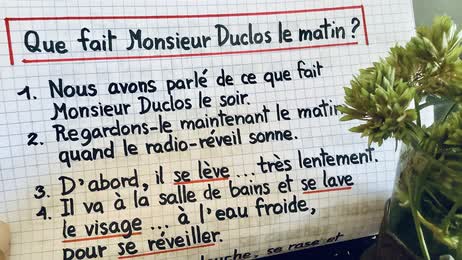 Que fait Monsieur Duclos le matin ?
1. Nous avons parlé de ce que fait
Monsieur Duclos le soir.
2. Regardons-le maintenant le matin
quand le radio-réveil sonne.
3. D'abord, il se lève ... très lentement.
4. Il va à la salle de bains et se lave
le visage ... à l'eau froide,
pour se réveiller.
se rase et